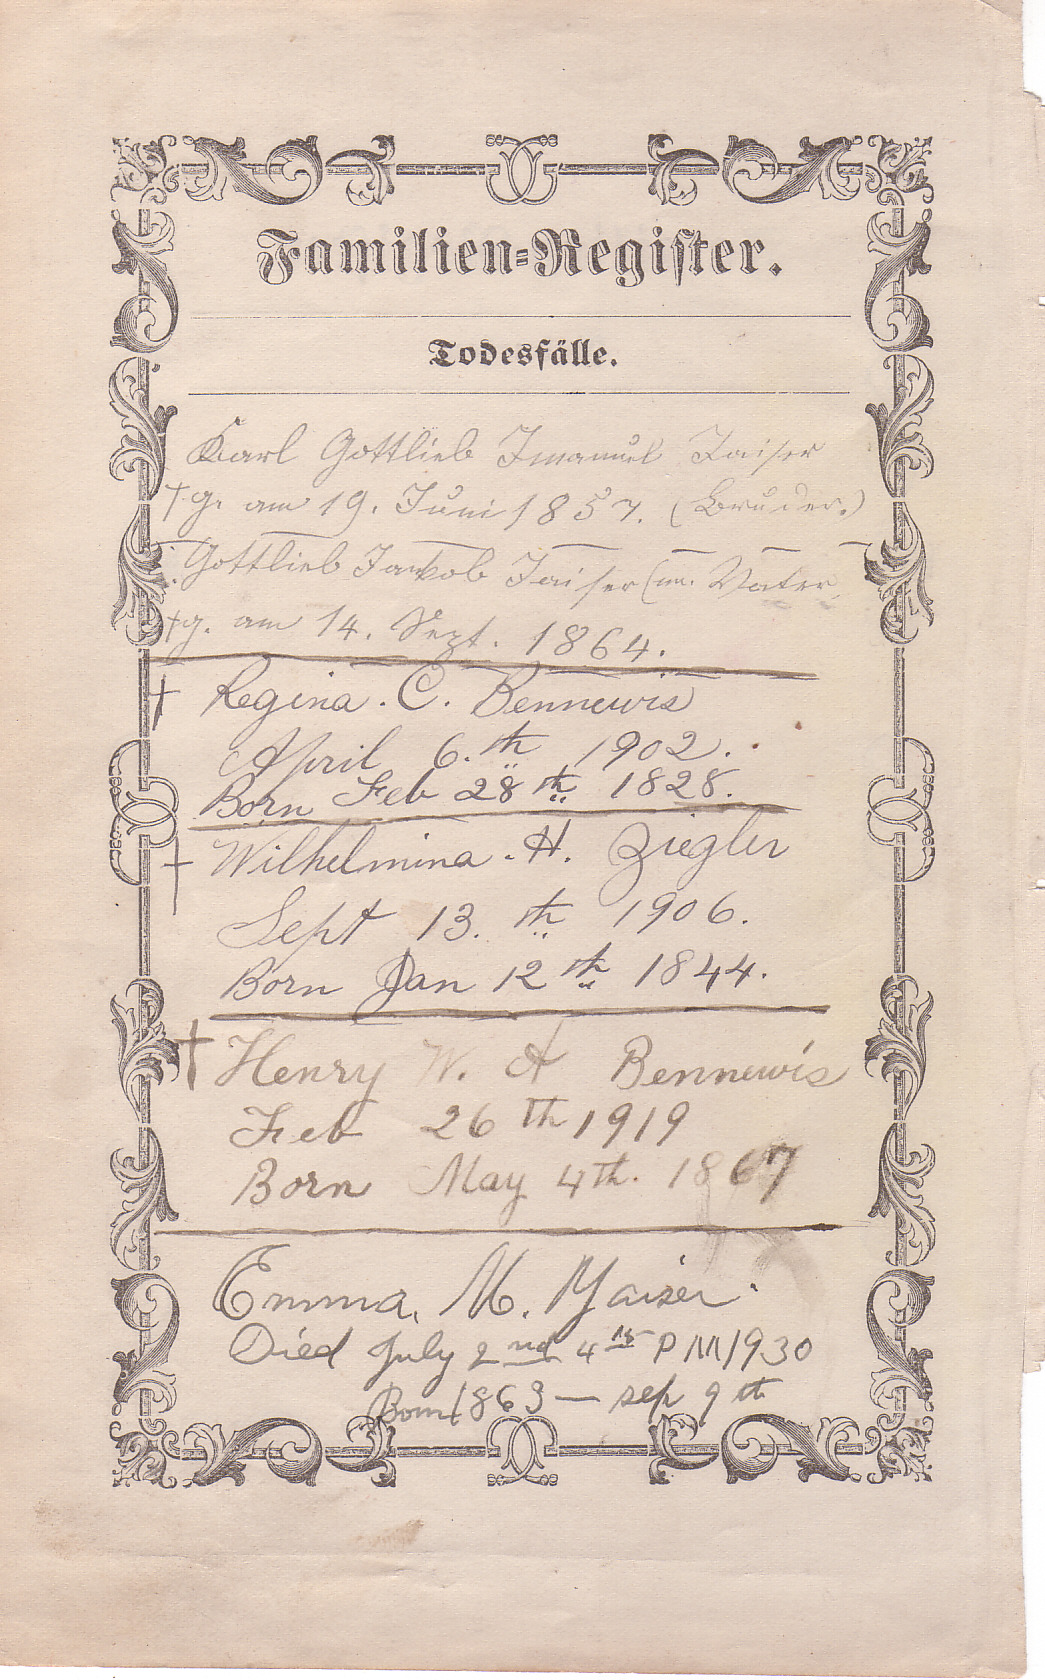 Familien-Register.
Todesfälle.
Karl Gottlieb Imanuel Jaiser
† g. am 19. Juni 1857. (Bruder.)
Gottlieb Jakob Jaiser (m. Vater
† g. am 14. Sept. 1864.
† Regina . C. Bennewis
April 6.th 1902.
Born Feb 28th 1828.
† Wilhelmina . H. Ziegler
Sept 13. th 1906.
Born Jan 12 th 1844.
† Henry W. A Bennewis
Feb 26 Th 1919
Born May 4th. 1867
Emma. M. Yaiser.
Died July 2nd 4 15 PM 1930
Born 1863 — sep 9 th